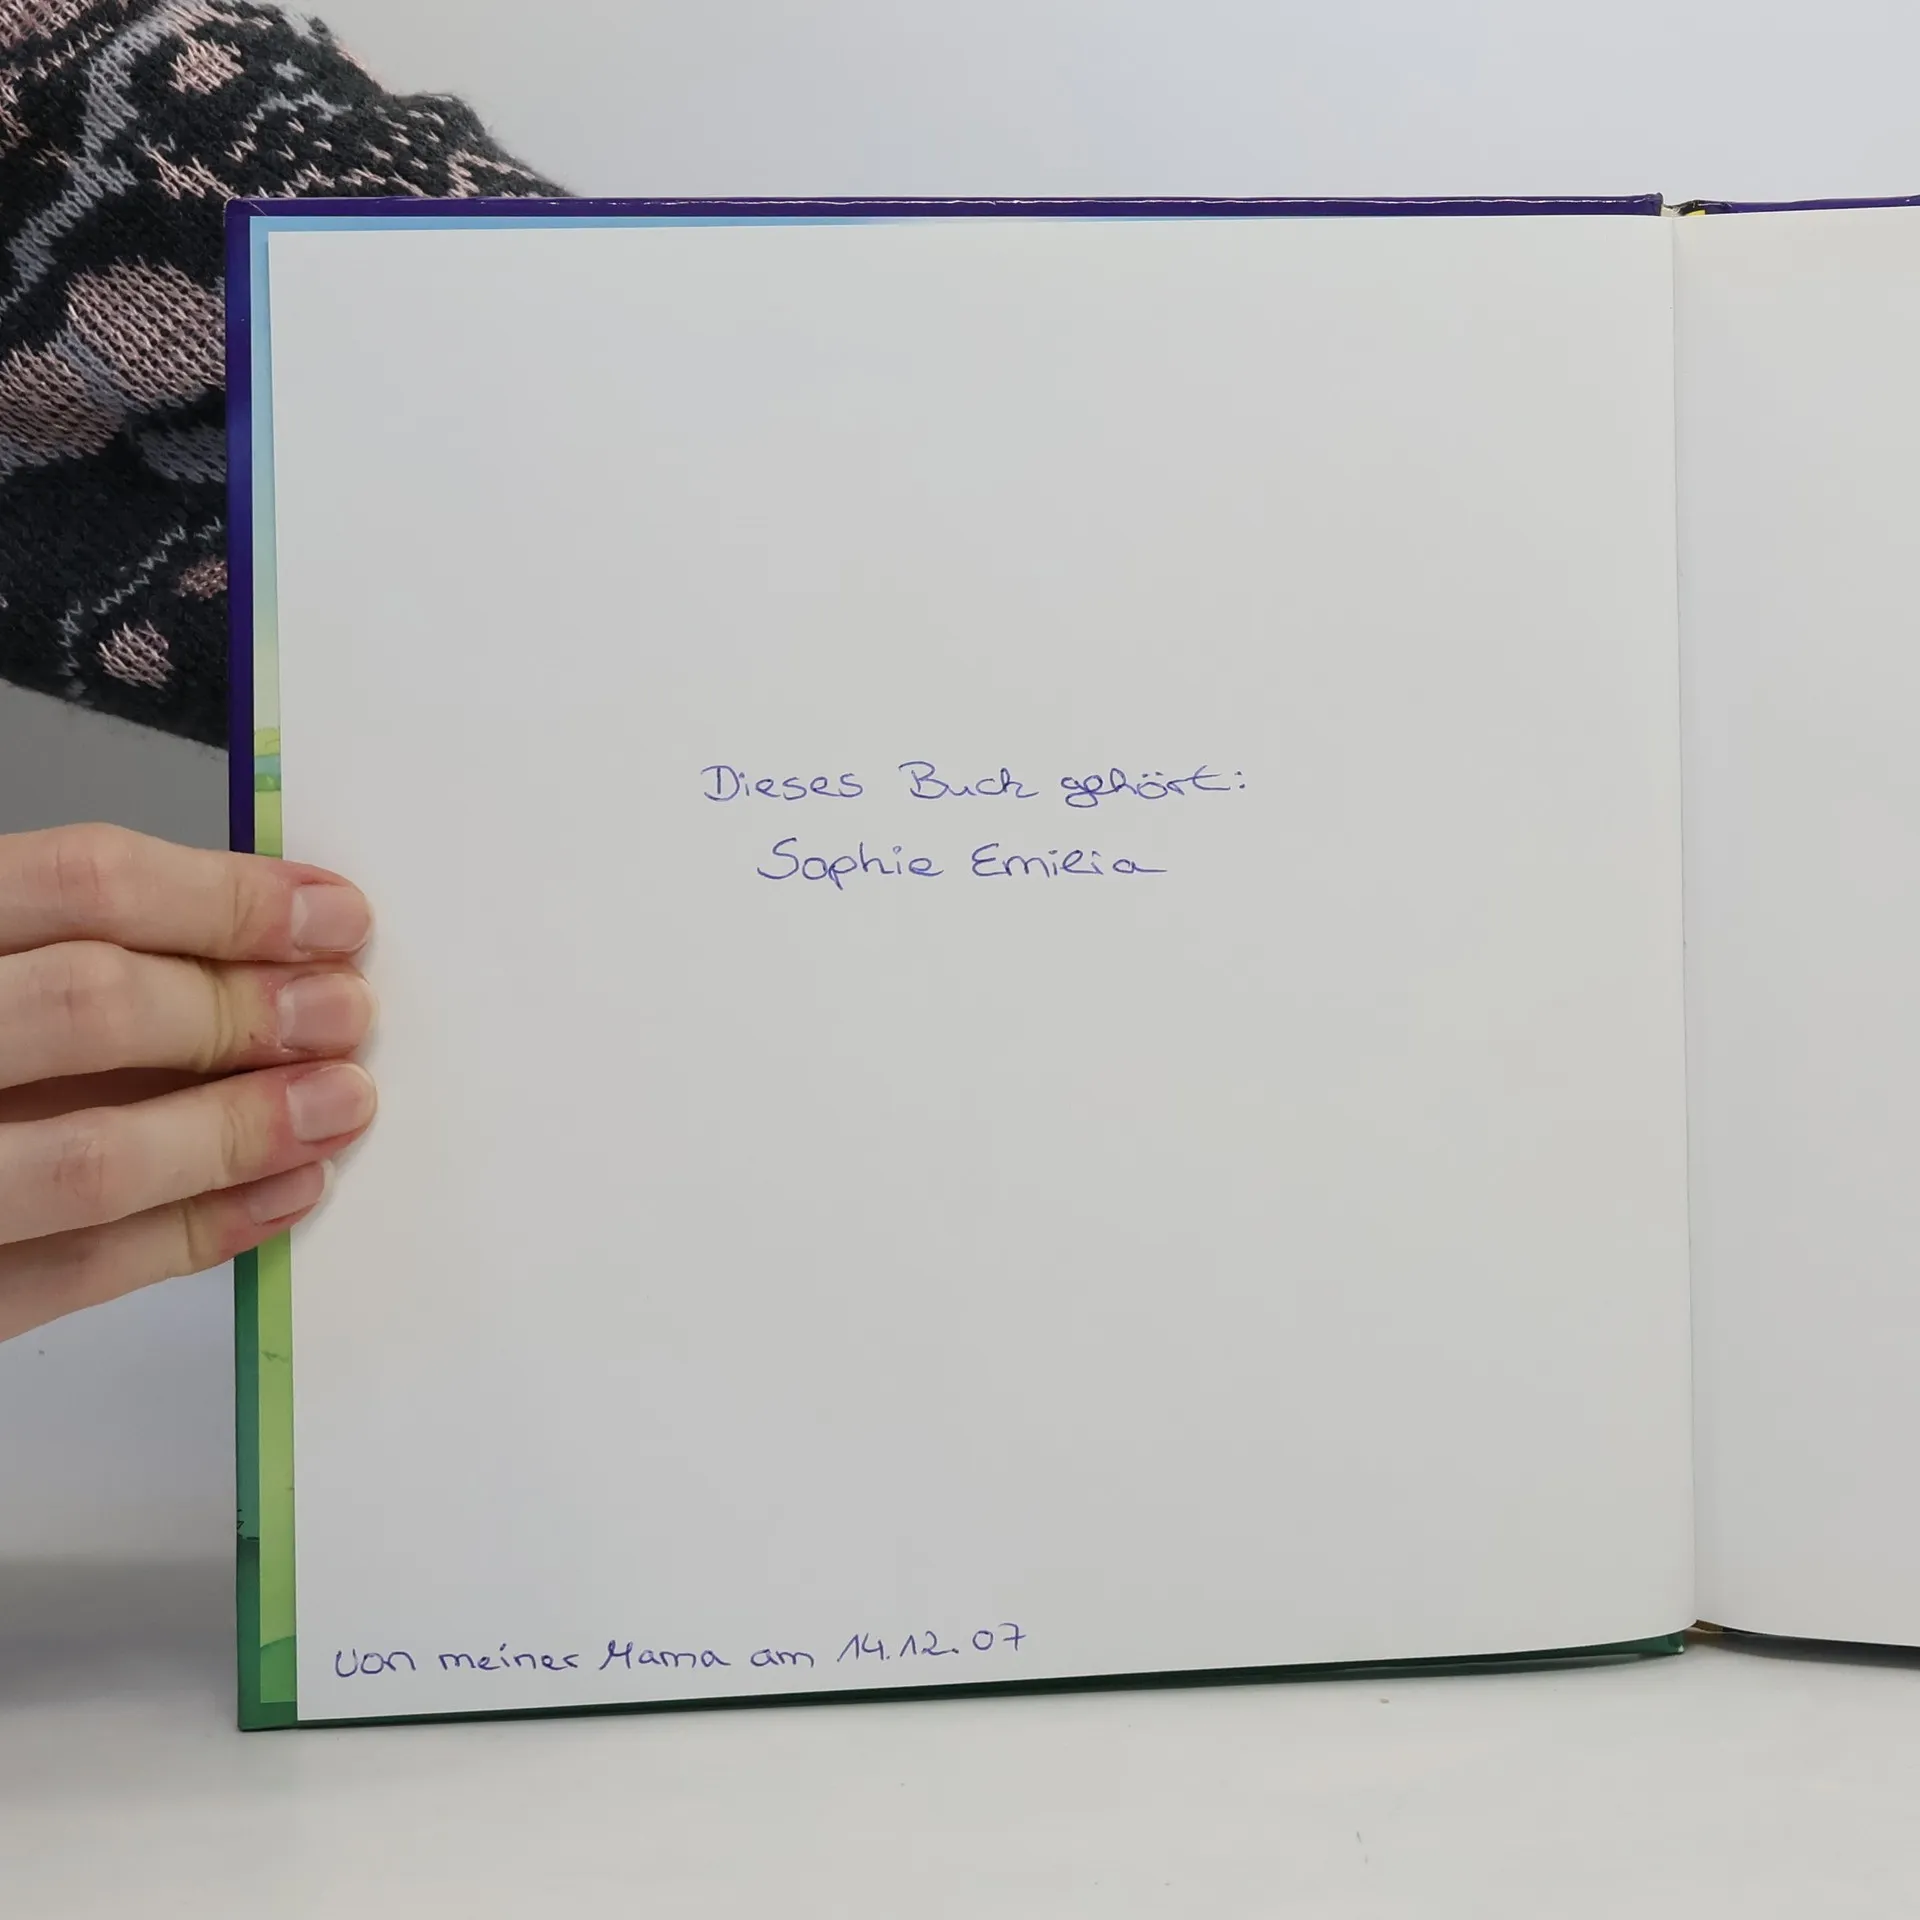 Dieses Buch gehört:
Sophie Emilia
von meiner Mama am 14.12.07